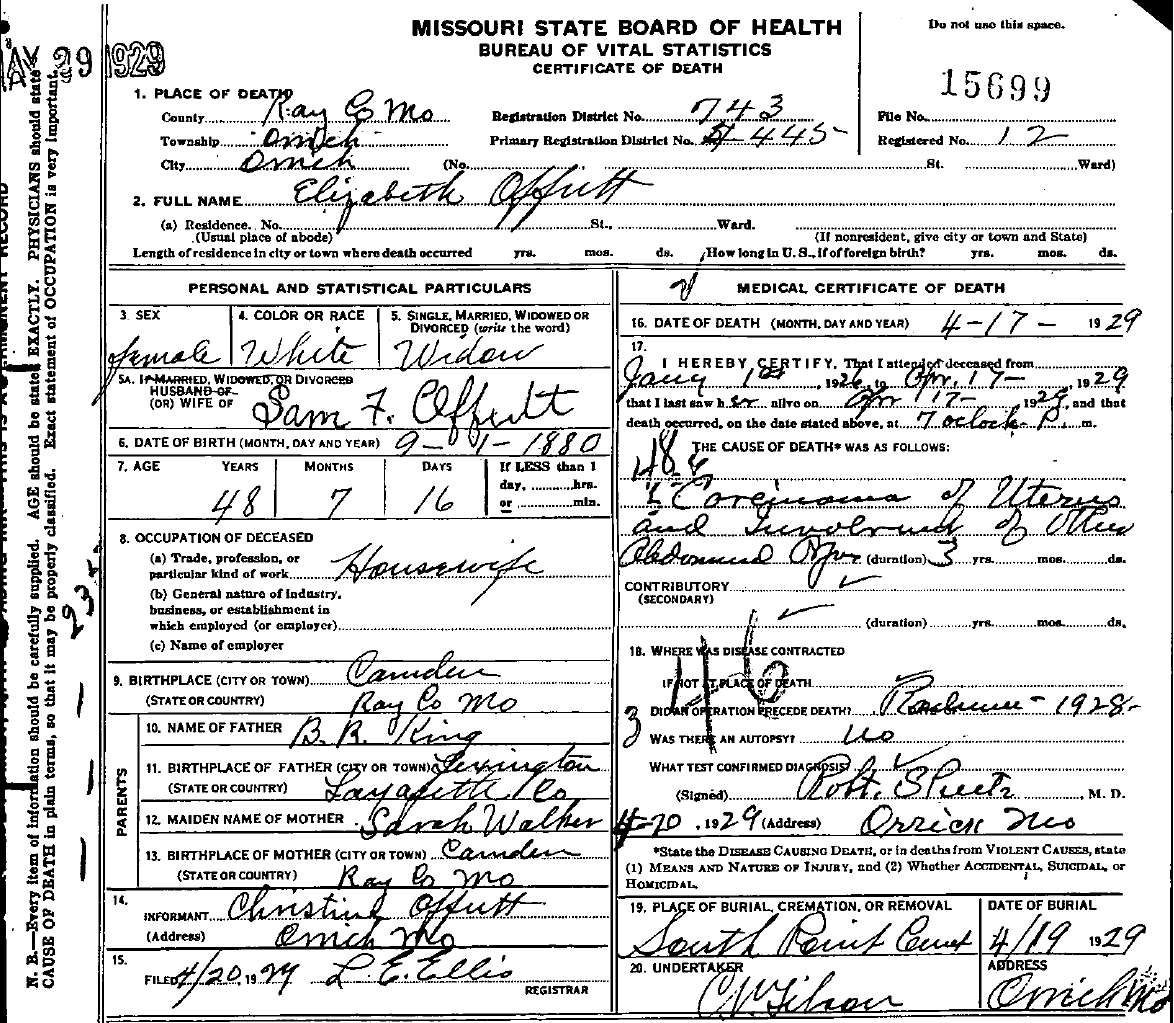 MISSOURI STATE BOARD OF HEALTH
BUREAU OF VITAL STATISTICS
CERTIFICATE OF DEATH
Do not use this space.
29 1929
15699
1. PLACE OF DEATH
County Ray Co Mo
Registration District No. 743
File No.
Township Orrick
Primary Registration District No. 4445
Registered No. 12
City Orrick (No. St. Ward)
2. FULL NAME Elizabeth Offutt
(a) Residence. No. St., Ward.
(Usual place of abode) (If nonresident, give city or town and State)
Length of residence in city or town where death occurred yrs. mos. ds. How long in U. S., if of foreign birth? yrs. mos. ds.
PERSONAL AND STATISTICAL PARTICULARS
3. SEX 4. COLOR OR RACE 5. SINGLE, MARRIED, WIDOWED OR
DIVORCED (write the word)
female White Widow
5A. IF MARRIED, WIDOWED, OR DIVORCED
HUSBAND OF
(OR) WIFE OF Sam F. Offutt
6. DATE OF BIRTH (MONTH, DAY AND YEAR) 9-1-1880
7. AGE YEARS MONTHS DAYS If LESS than 1
day, hrs.
or min.
48 7 16
8. OCCUPATION OF DECEASED
(a) Trade, profession, or
particular kind of work Housewife
(b) General nature of industry,
business, or establishment in
which employed (or employer)
(c) Name of employer
9. BIRTHPLACE (CITY OR TOWN) Camden
(STATE OR COUNTRY) Ray Co Mo
PARENTS
10. NAME OF FATHER B. R. King
11. BIRTHPLACE OF FATHER (CITY OR TOWN) Lexington
(STATE OR COUNTRY) Layafette Co
12. MAIDEN NAME OF MOTHER Sarah Walker
13. BIRTHPLACE OF MOTHER (CITY OR TOWN) Camden
(STATE OR COUNTRY) Ray Co Mo
14.
INFORMANT Christine Offutt
(Address) Orrick Mo
15.
FILED 4/20, 1929 L. E. Ellis
REGISTRAR
MEDICAL CERTIFICATE OF DEATH
16. DATE OF DEATH (MONTH, DAY AND YEAR) 4-17- 1929
17.
I HEREBY CERTIFY, That I attended deceased from
Jany 1st, 1926, to Apr. 17-, 1929
that I last saw her alive on Apr 17-, 1929, and that
death occurred, on the date stated above, at 7 oclock P. m.
THE CAUSE OF DEATH* WAS AS FOLLOWS:
48
Carcinoma of Uterus
and Involvment of Other
Abdominal (duration) 3 yrs. mos. ds.
CONTRIBUTORY
(SECONDARY)
(duration) yrs. mos. ds.
18. WHERE WAS DISEASE CONTRACTED
IF NOT AT PLACE OF DEATH
46
DID AN OPERATION PRECEDE DEATH? 1928-
3
WAS THERE AN AUTOPSY? no
WHAT TEST CONFIRMED DIAGNOSIS?
(Signed) Robt. Sheetz, M. D.
4-20, 1929 (Address) Orrick Mo
*State the DISEASE CAUSING DEATH, or in deaths from VIOLENT CAUSES, state
(1) MEANS AND NATURE OF INJURY, and (2) Whether ACCIDENTAL, SUICIDAL, or
HOMICIDAL.
19. PLACE OF BURIAL, CREMATION, OR REMOVAL DATE OF BURIAL
South Point Cemet 4/19 1929
20. UNDERTAKER ADDRESS
C. V. Gibson Orrick Mo
N. B.—Every item of information should be carefully supplied. AGE should be stated EXACTLY. PHYSICIANS should state
CAUSE OF DEATH in plain terms, so that it may be properly classified. Exact statement of OCCUPATION is very important.